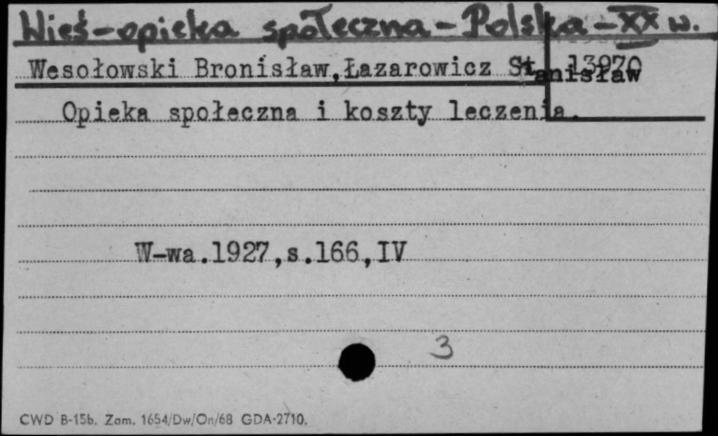 Wieś-opieka społeczna-Polska-XX w.
Wesołowski Bronisław,Łazarowicz Stanisław
13970
Opieka społeczna i koszty leczenia.
W-wa.1927,s.166,IV
3
CWD B-15b. Zam. 1654/Dw/On/68 GDA-2710.